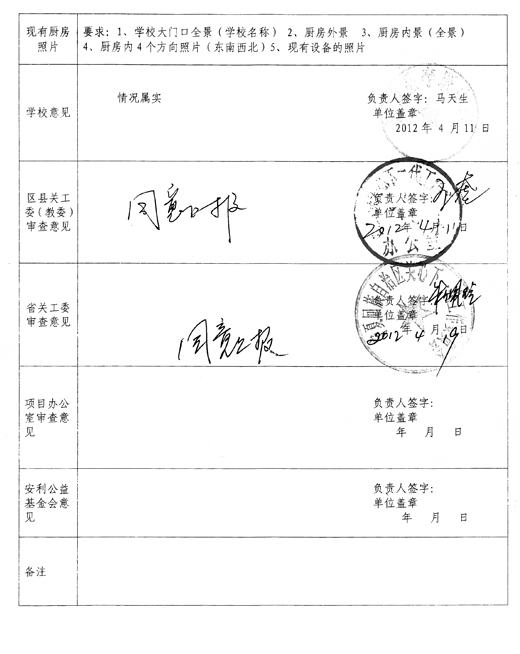 现有厨房照片
要求：1、学校大门口全景（学校名称） 2、厨房外景 3、厨房内景（全景）
4、厨房内4个方向照片（东南西北）5、现有设备的照片
学校意见
情况属实
负责人签字：马天生
单位盖章
2012年 4 月 11日
区县关工委（教委）审查意见
同意上报
负责人签字：
单位盖章
2012年 4月 11日
办公室
省关工委审查意见
同意上报
负责人签字：
单位盖章
2012 年 4 月 19日
项目办公室审查意见
负责人签字：
单位盖章
年 月 日
安利公益基金会意见
负责人签字：
单位盖章
年 月 日
备注